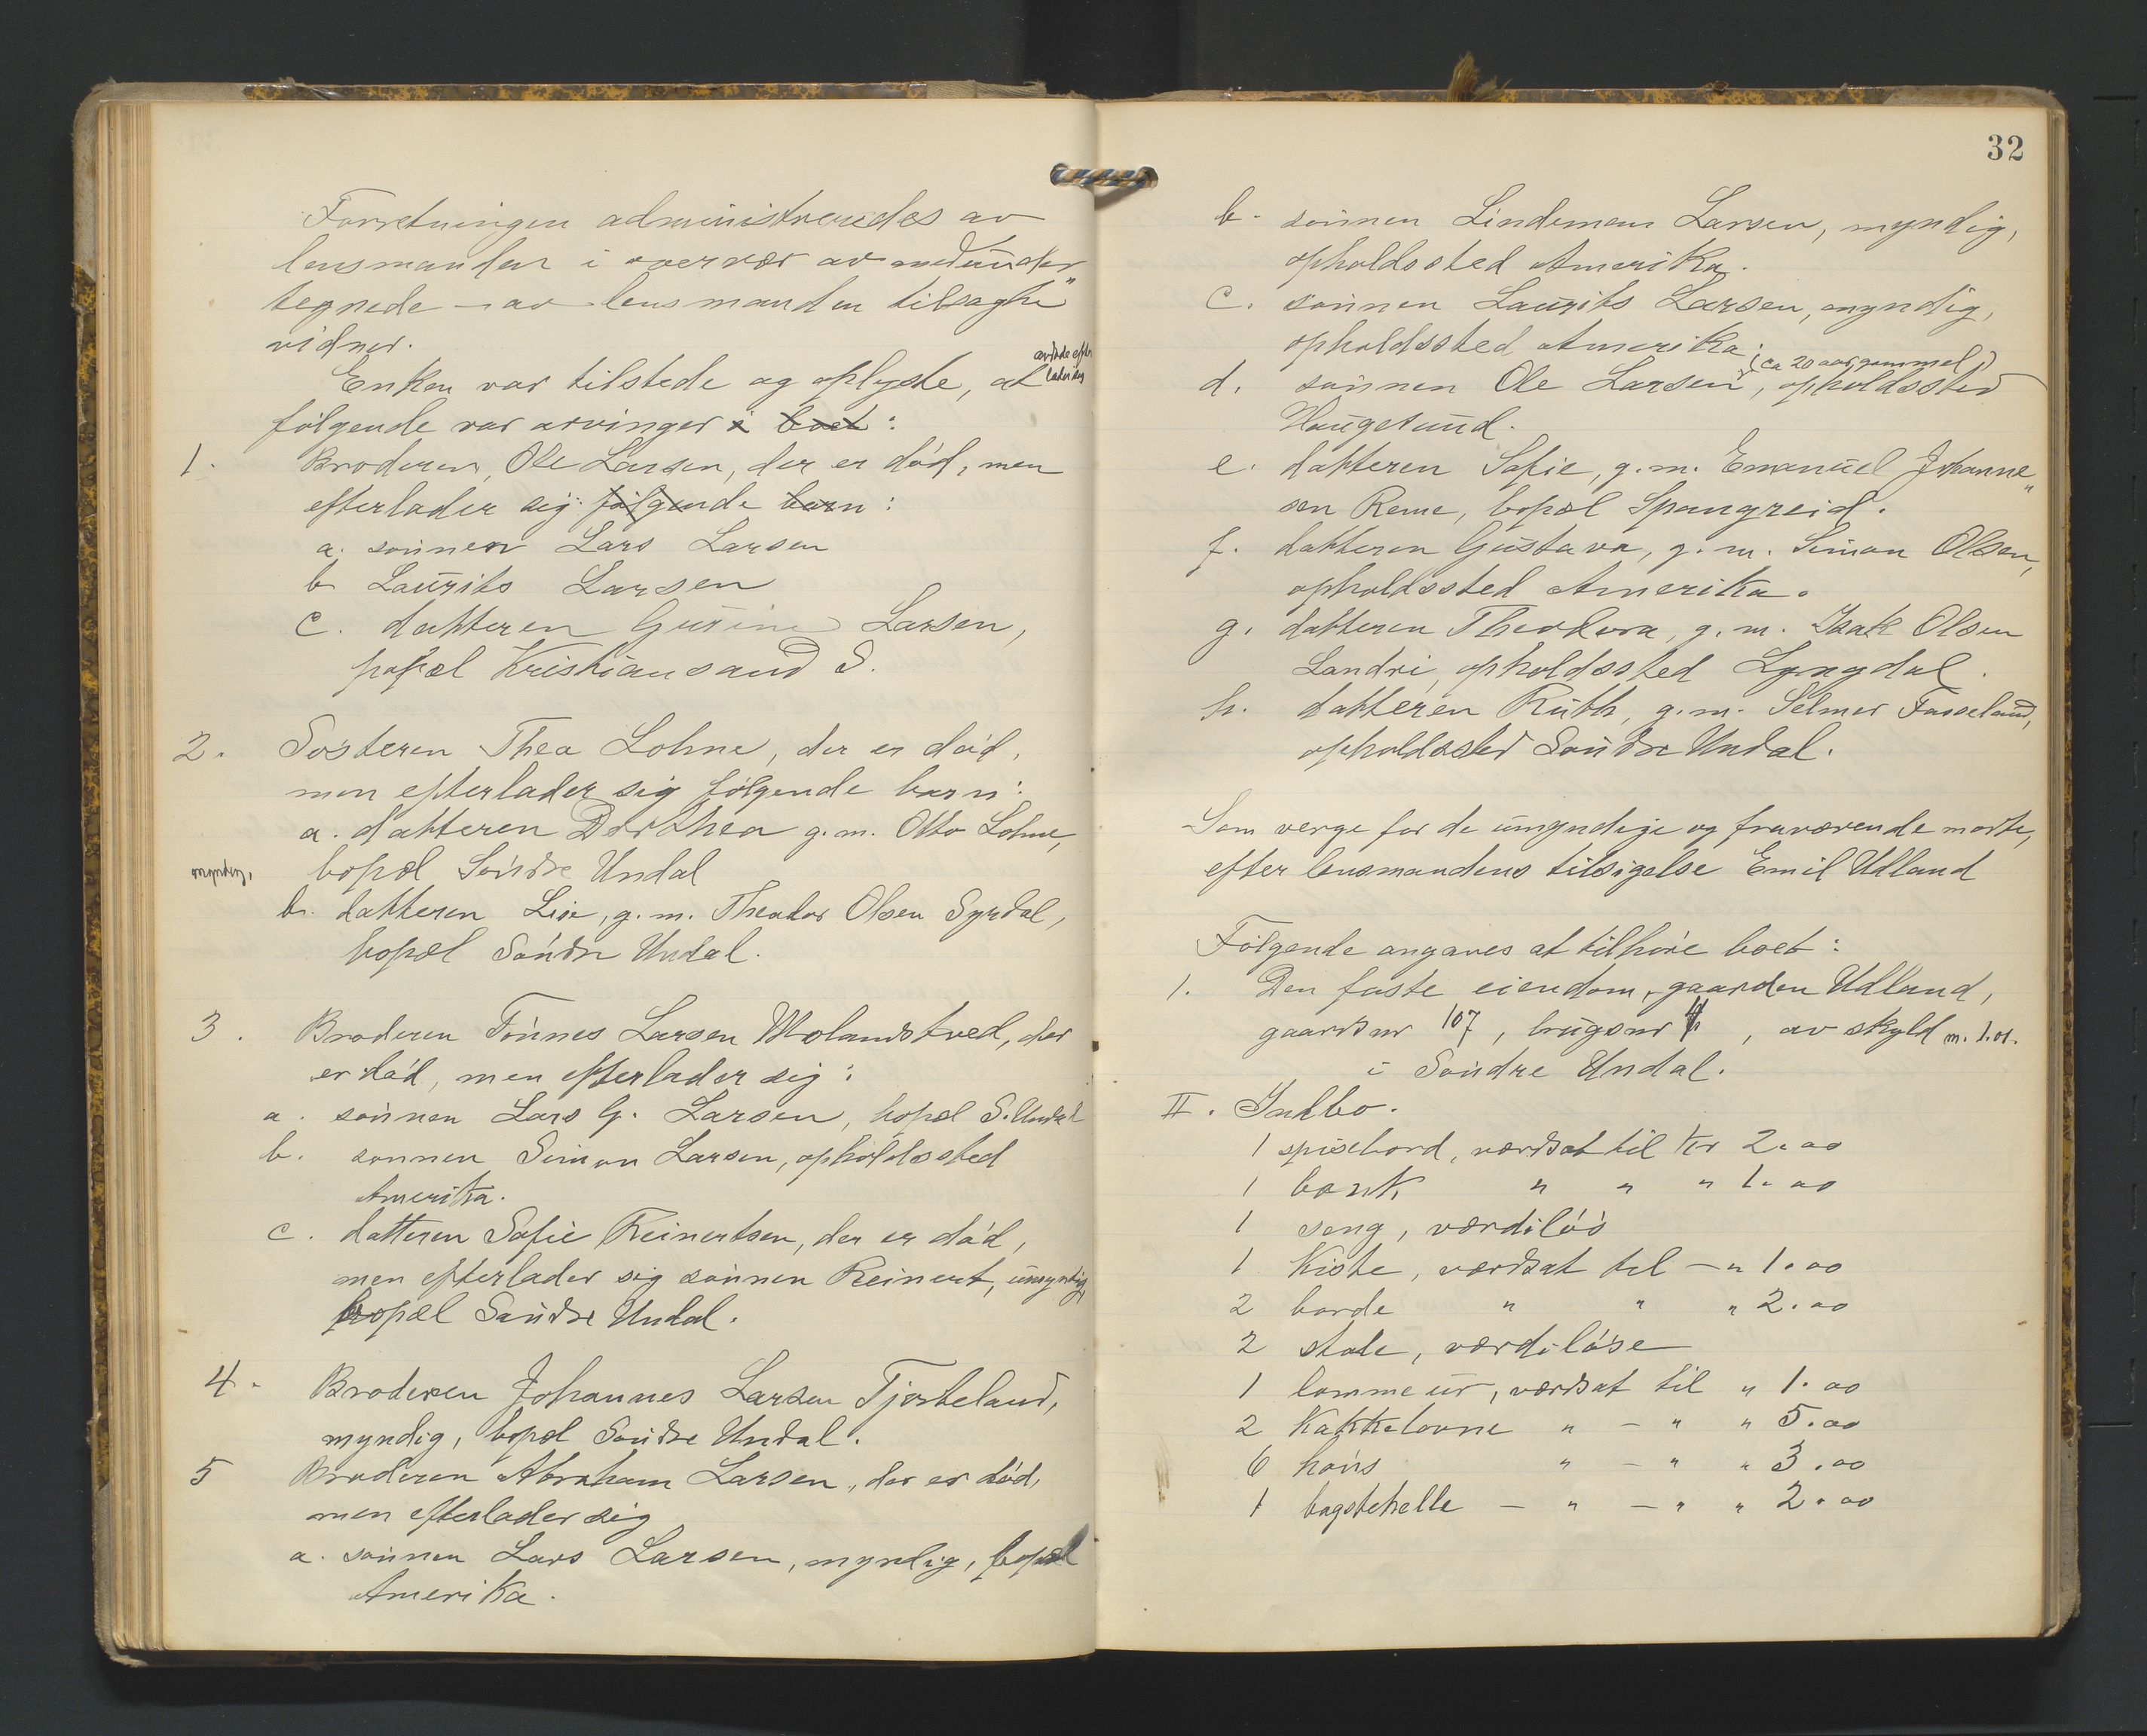 Forretningen administreredes av
lensmanden i overvær av medunder„
tegnede – av lensmanden tilsagte
vidner.
Enken var tilstede og oplyste, at
følgende var arvinger i boet:
1. Broderen Ole Larsen, der er død, men
efterlader sig følgende barn:
a. sønnen Lars Larsen
b Laurits Larsen
c. datteren Gurine Larsen,
popæl Kristiansand S.
2. Søsteren Thea Lohne, der er død,
men efterlader sig følgende barn:
a. datteren Dorthea g.m. Otto Lohne,
myndig, bopæl Søndre Undal
b. datteren Lise, g.m. Theodor Olsen Syrdal,
bopæl Søndre Undal.
3. Broderen Tønnes Larsen Molandstved, der
er død, men efterlader sig:
a. sønnen Lars G. Larsen, bopæl S. Undal
b. sønnen Simon Larsen, opholdssted
Amerika.
c. datteren Sofie Reinertsen, der er død,
men efterlader sig sønnen Reinert, umyndig,
bopæl Søndre Undal.
4. Broderen Johannes Larsen Tjosteland,
myndig, bopæl Søndre Undal.
5 Broderen Abraham Larsen, der er død,
men efterlader sig
a. sønnen Lars Larsen, myndig, bopæl
Amerika.
32
b. sønnen Lindeman Larsen, myndig,
opholdssted Amerika.
c. sønnen Laurits Larsen, myndig,
opholdssted Amerika.
(ca 20 aar gammel)
d. sønnen Ole Larsen, opholdssted
Haugesund.
e. datteren Sofie, g.m. Emanuel Johanne„
sen Reme, bopæl Spangreid.
f. datteren Gustava, g.m. Simon Olsen,
opholdssted Amerika.
g. datteren Theodora, g.m. Isak Olsen
Landri, opholdssted Lyngdal.
h. datteren Ruth, g.m. Selmer Fasseland,
opholdssted Søndre Undal.
Som verge for de umyndige og fraværende møtte,
efter lensmandens tilsigelse Emil Udland
Følgende angaves at tilhøre boet:
1. Den faste eiendom, gaarden Udland,
gaardsnr 107, brugsnr 4, av skyld m. 1.01.
i Søndre Undal.
II. Indbo.
1 spisebord, værdsat til kr 2.00
1 bænk " " " 1.00
1 seng, værdiløs
1 kiste, værdsat til – " 1.00
2 borde " " " 2.00
2 stole, værdiløse
1 lommeur, værdsat til " 1.00
2 kakkelovne " – " " 5.00
6 høns " – " " 3.00
1 bagstehelle – " – " " 2.00